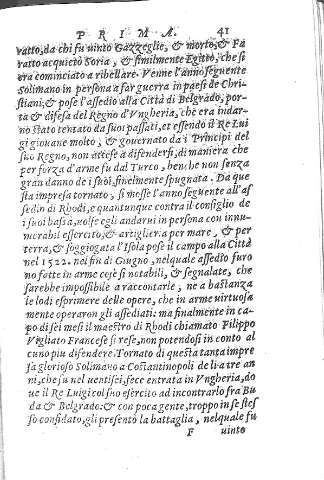 PRIMA. 41
ratto, da chi fu uinto Gazzeglie, & morto, & Fa
ratto acquietò Soria, & similmente Egitto, che si
era cominciato a ribellare. Venne l'anno seguente
Solimano in persona a far guerra in paesi de Chri-
stiani, & pose l'assedio alla Città di Belgrado, por-
ta & difesa del Regno d'Vngheria, che era indar-
no stato tentato da suoi passati, et essendo il Re Lui
gi giouane molto, & gouernato da i Principi del
suo Regno, non attese a difendersi, di maniera che
per forza d'arme fu dal Turco, benche non senza
gran danno de i suoi, finelmente spugnata. Da que
sta impresa tornato, si messe l'anno seguente all'as
sedio di Rhodi, e quantunque contra il consiglio de
i suoi bassà, uolse egli andarui in persona con innu-
merabil essercito, & artiglieria per mare, & per
terra, & soggiogata l'Isola pose il campo alla Città
nel 1522. nel fin di Giugno, nel quale assedio furo
no fatte in arme cose sì notabili, & segnalate, che
sarebbe impossibile a raccontarle, ne a bastanza
le lodi esprimere delle opere, che in arme uirtuosa
mente operaron gli assediati: ma finalmente in ca-
po di sei mesi il maestro di Rhodi chiamato Filippo
Vigliato Francese si rese, non potendosi in conto al
cuno piu difendere. Tornato di questa tanta impre
sa glorioso Solimano a Costantinopoli de lì a tre an
ni, che fu nel uentisei, fece entrata in Vngheria, do
ue il Re Luigi col suo esercito ad incontrarlo fra Bu
da & Belgrado: & con poca gente, troppo in se stes
so confidato, gli presentò la battaglia, nel quale fu
F uinto